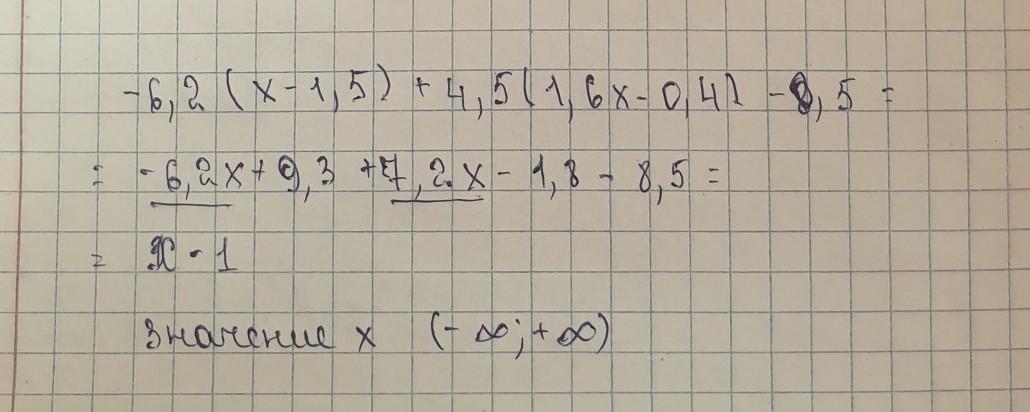 -6,2 (x - 1,5) + 4,5(1,6x - 0,4) - 8,5 =
= -6,2x + 9,3 + 7,2x - 1,8 - 8,5 =
= x - 1
значение x (-∞; +∞)